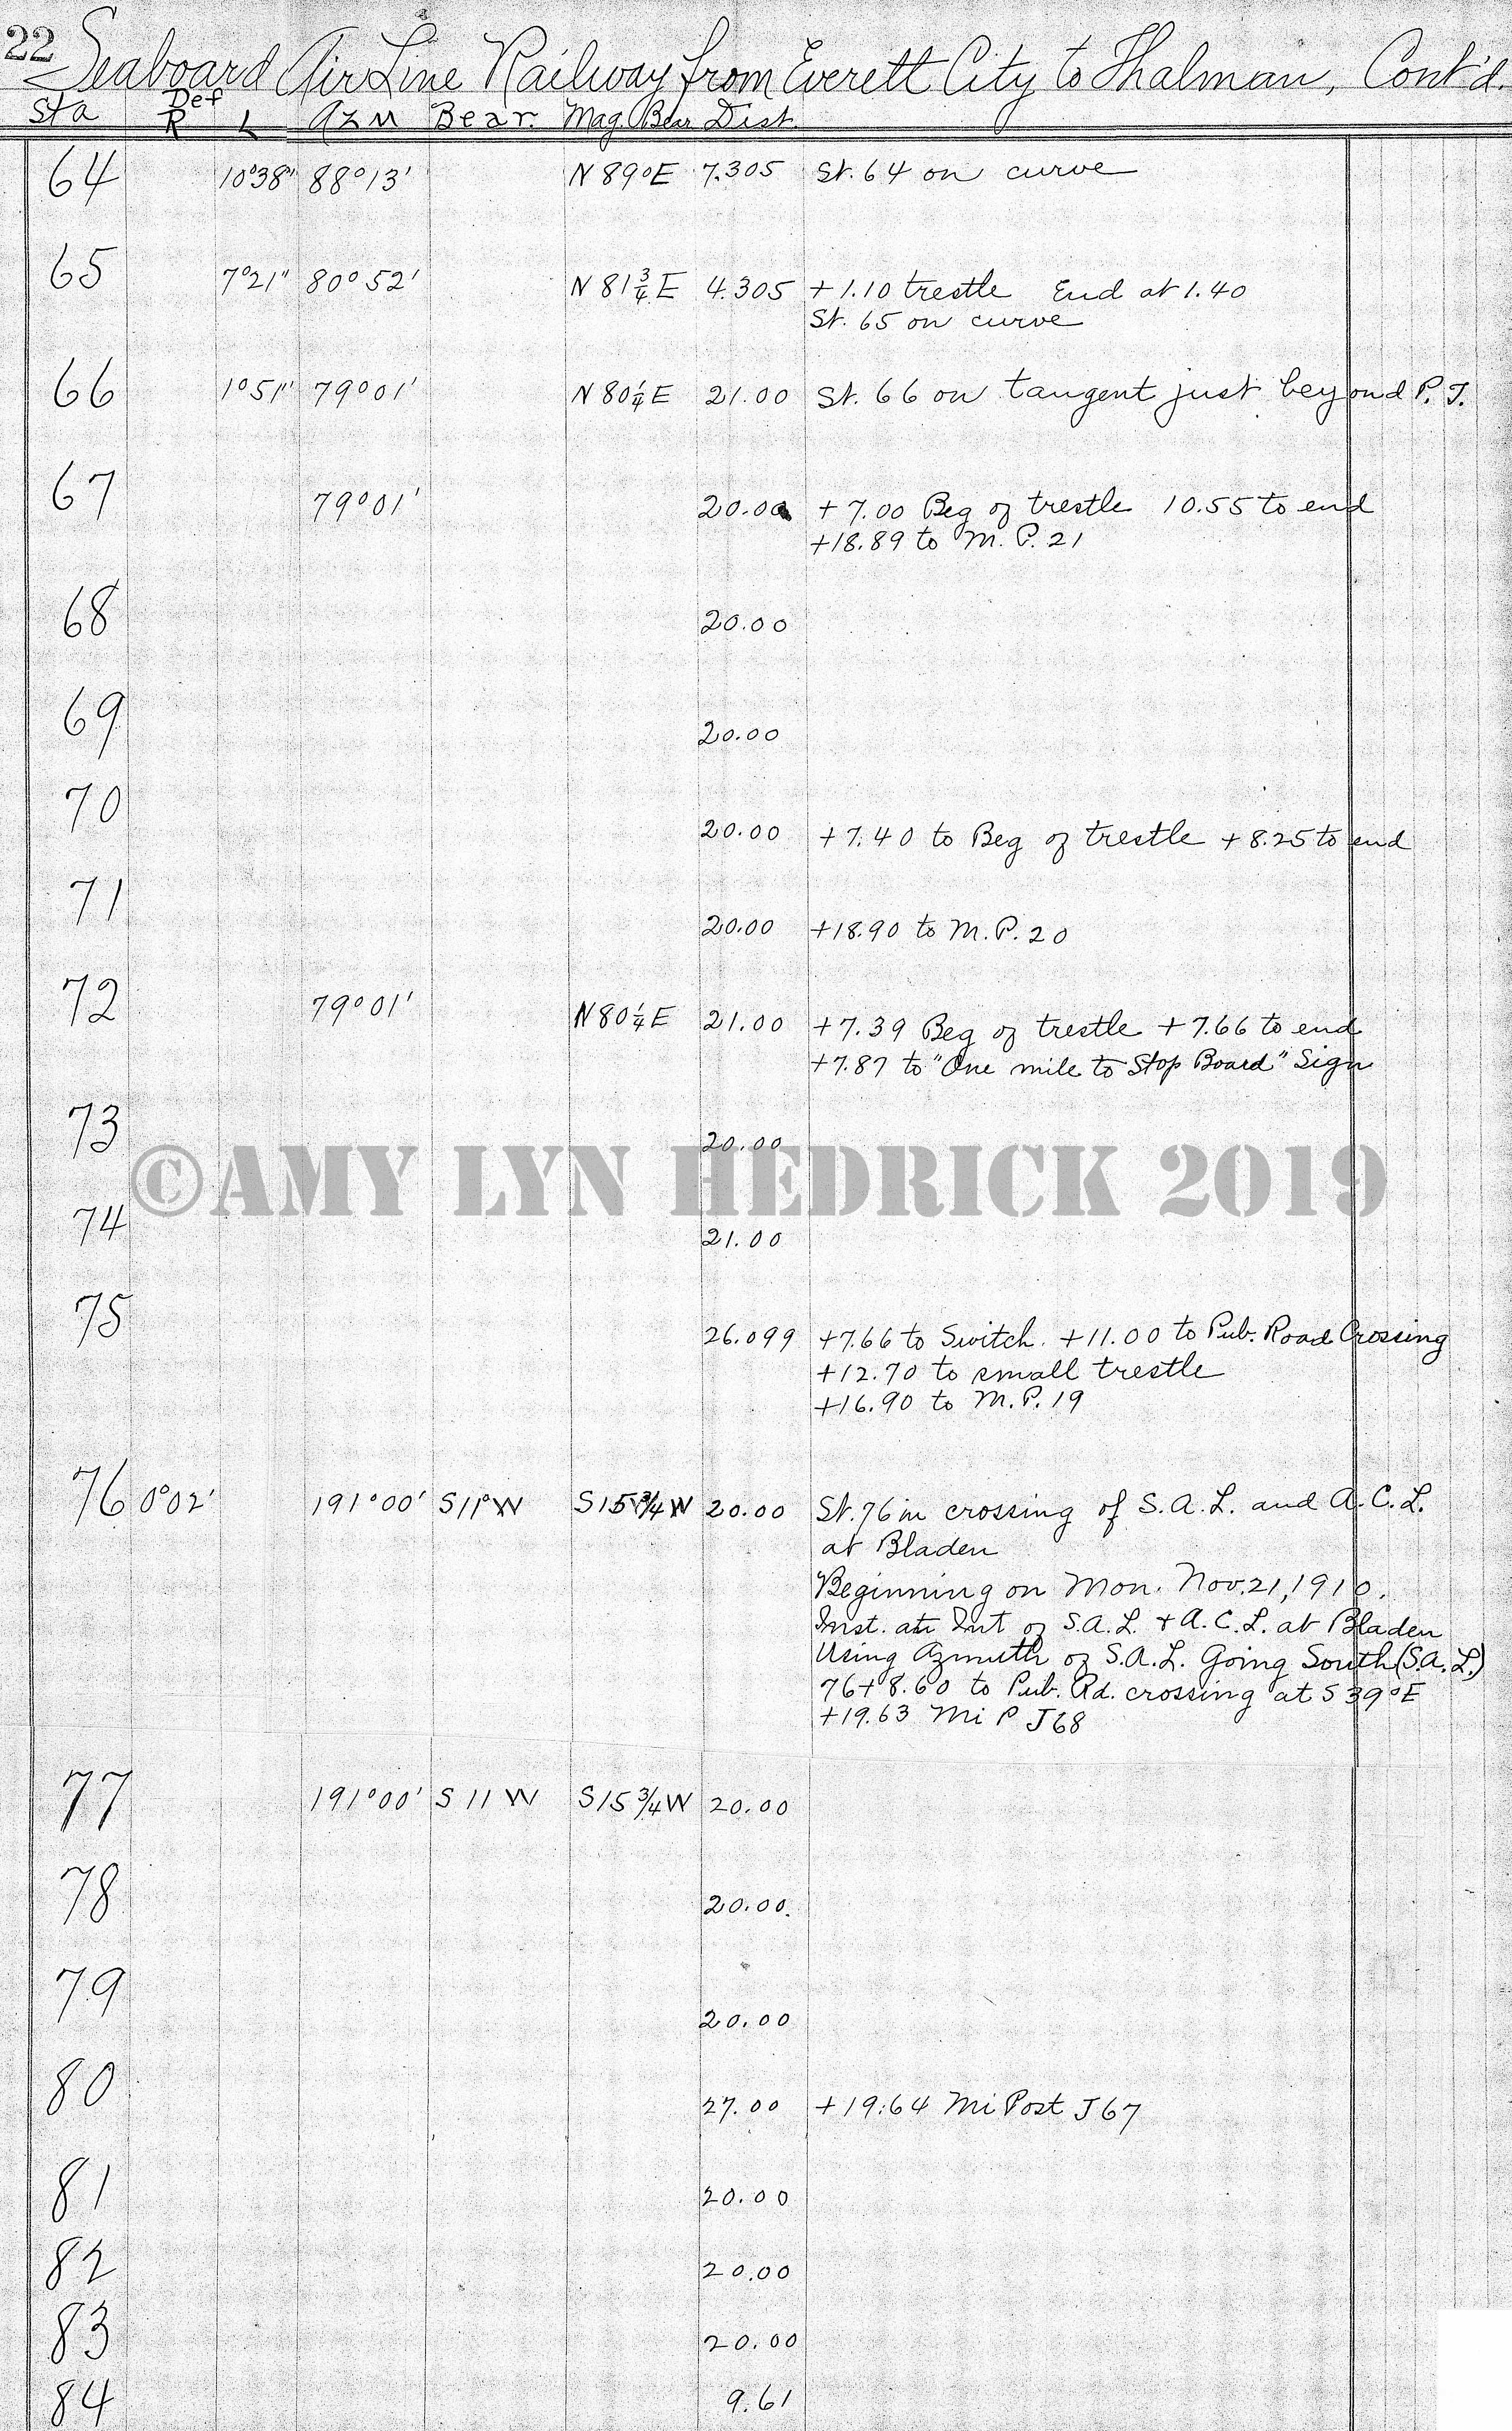 22 Seaboard Air Line Railway from Everett City to Thalman, Cont'd.
Sta Def R L Azm Bear. Mag. Bear Dist.
64 10°38" 88°13' N 89°E 7.305 St. 64 on curve
65 7°21" 80°52' N 81 3/4 E 4.305 + 1.10 trestle End at 1.40
St. 65 on curve
66 1°51" 79°01' N 80 1/4 E 21.00 St. 66 on tangent just beyond P. T.
67 79°01' 20.00 + 7.00 Beg of trestle 10.55 to end
+18.89 to M. P. 21
68 20.00
69 20.00
70 20.00 + 7.40 to Beg of trestle + 8.25 to end
71 20.00 +18.90 to M. P. 20
72 79°01' N 80 1/4 E 21.00 +7.39 Beg of trestle +7.66 to end
+7.87 to "One mile to Stop Board" Sign
73 20.00
©AMY LYN HEDRICK 2019
74 21.00
75 26.099 +7.66 to Switch. +11.00 to Pub. Road Crossing
+12.70 to small trestle
+16.90 to M. P. 19
76 0°02' 191°00' S11°W S15 3/4 W 20.00 St. 76 in crossing of S. A. L. and A. C. L.
at Bladen
Beginning on Mon. Nov. 21, 1910.
Inst. at Int of S. A. L. + A. C. L. at Bladen
Using Azmuth of S. A. L. Going South (S. A. L.)
76+8.60 to Pub. Rd. crossing at S 39°E
+19.63 Mi P J68
77 191°00' S 11 W S15 3/4 W 20.00
78 20.00.
79 20.00
80 27.00 +19.64 Mi Post J67
81 20.00
82 20.00
83 20.00
84 9.61